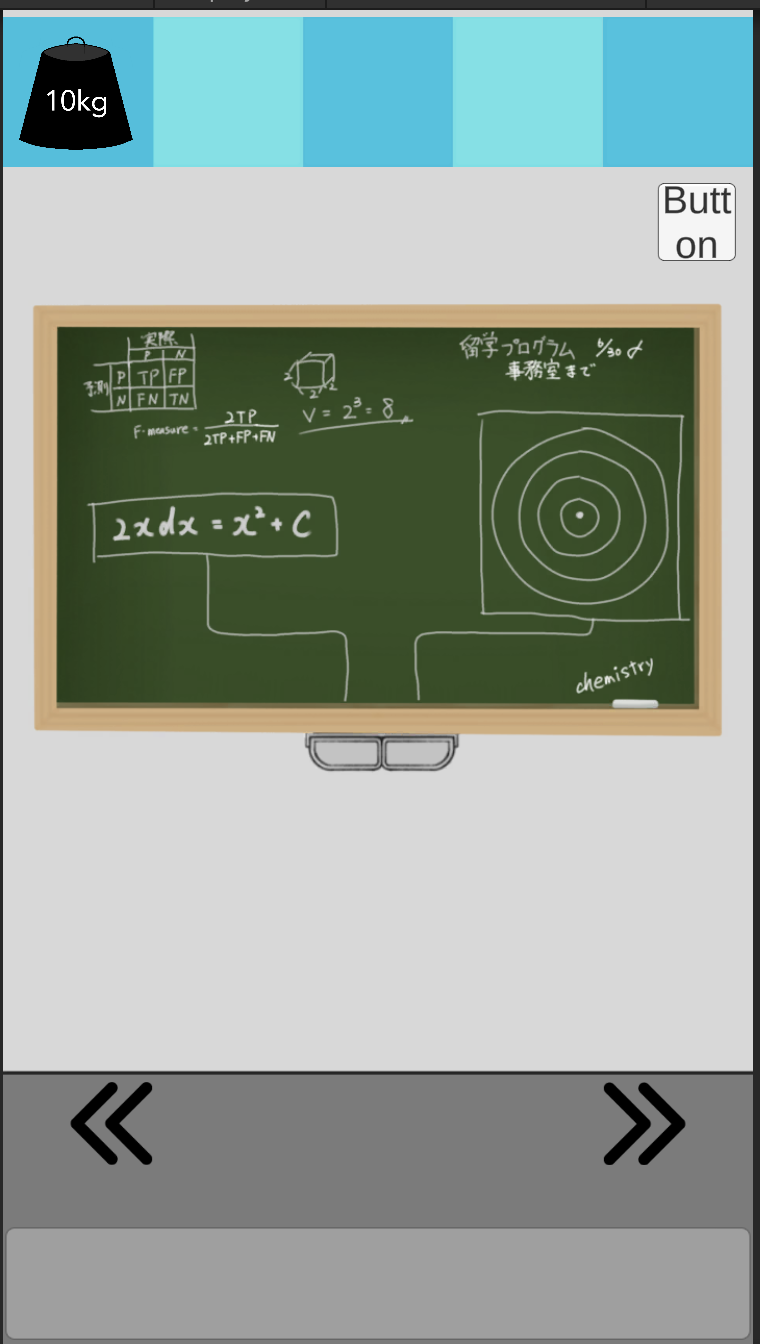 10kg
Butt
on
実際
P N
予測 P TP FP
N FN TN
F-measure = 2TP
2TP+FP+FN
2 2 2
V = 2³ = 8
留学プログラム 6/30 〆
事務室まで
2xdx = x² + C
chemistry